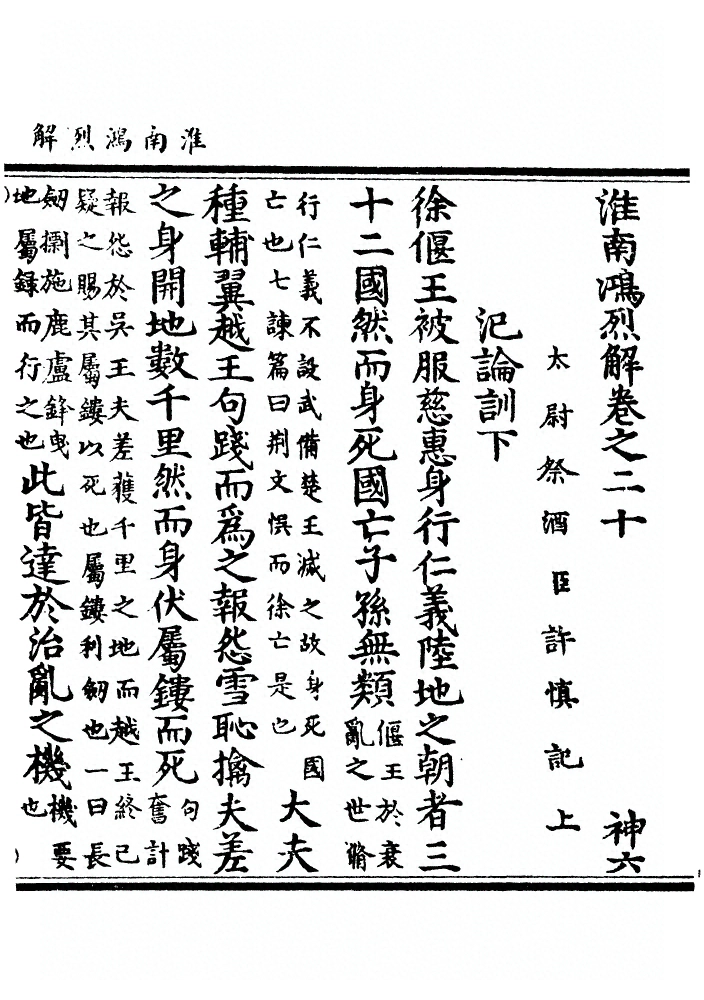 淮南鴻烈解
淮南鴻烈解卷之二十　神六
太尉祭酒臣許慎記上
汜論訓下
徐偃王被服慈惠身行仁義陸地之朝者三
十二國然而身死國亡子孫無類偃王於衰亂之世脩
行仁義不設武備楚王滅之故身死國亡也七諫篇曰荆文悮而徐亡是也大夫
種輔翼越王句踐而爲之報怨雪恥擒夫差
之身開地數千里然而身伏屬鏤而死句踐奮計
報怨於吳王夫差獲千里之地而越王終已疑之賜其屬鏤以死也屬鏤利劒也一曰長
劒摽施鹿盧鋒曳地屬録而行之也此皆達於治亂之機機要也